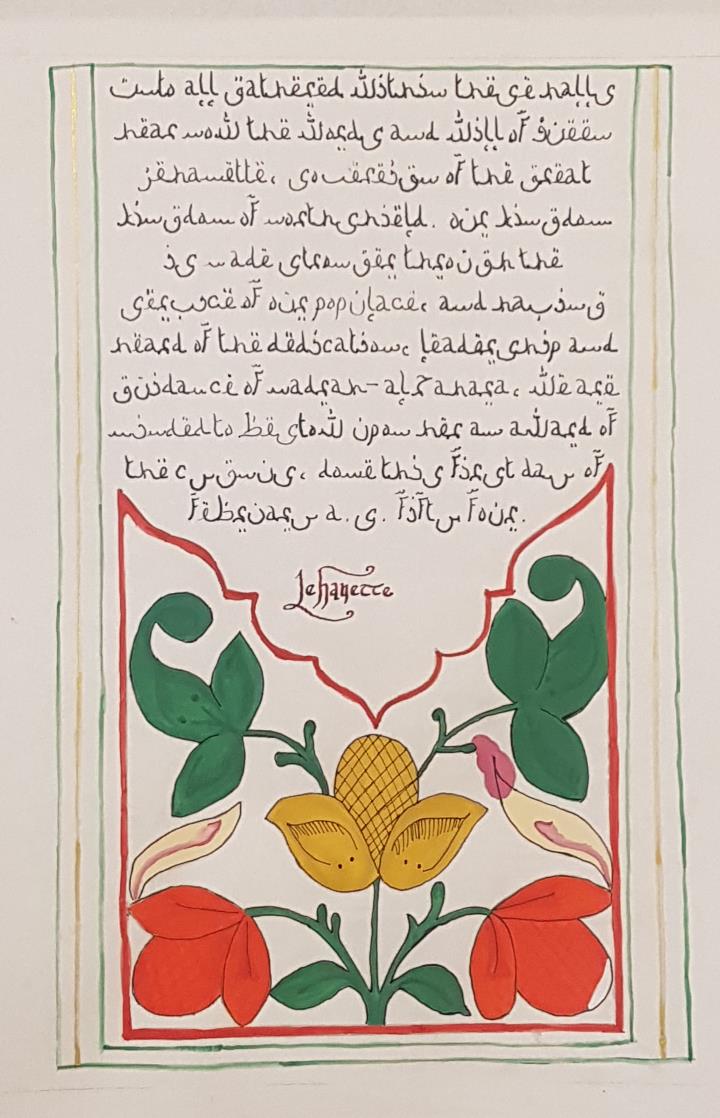 Unto all gathered within these halls
hear now the words and will of Queen
Jehanette, sovereign of the great
kingdom of northshield. our kingdom
is made stronger through the
service of our populace, and having
heard of the dedication, leadership and
guidance of nadrah-al Zahara, we are
minded to bestow upon her an award of
the cygnus, done this first day of
february a.s. fifty four.
Jehanette